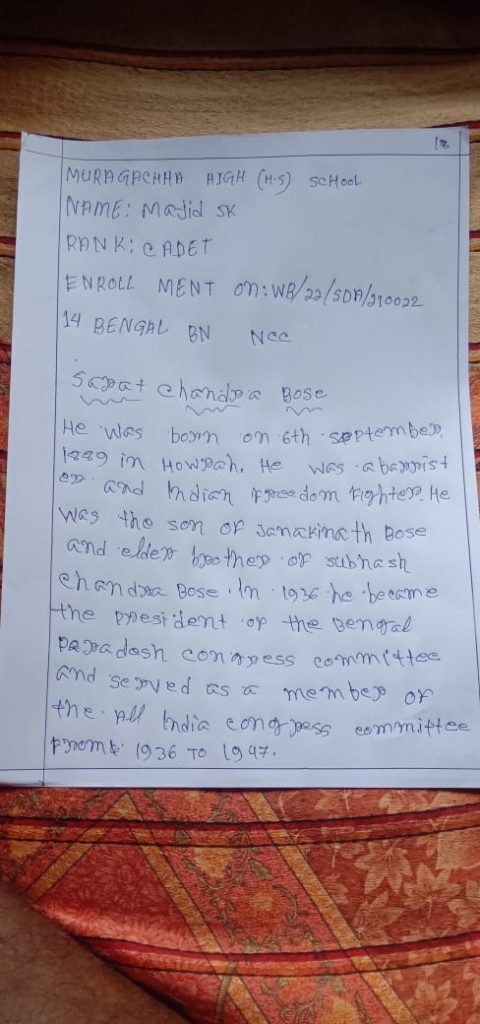 18
MURAGACHHA HIGH (H.S) SCHOOL
NAME: Majid SK
RANK: CADET
ENROLL MENT On: WB/22/SDA/210022
14 BENGAL BN NCC
Sarat Chandra Bose
He was born on 6th september,
1889 in Howrah. He was a barrist
er and Indian Freedom Fighter. He
was the son of Janakinath Bose
and elder brother of subhash
chandra Bose. In 1936 he became
the president of the Bengal
paradash congress committee
and served as a member of
the All India congress committee
From 1936 TO 1947.